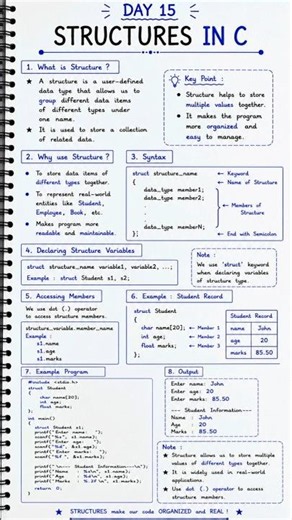 DAY 15
STRUCTURES IN C
1. What is Structure ?
★ A structure is a user-defined
data type that allows us to
group different data items
of different types under
one name.
★ It is used to store a collection
of related data.
Key Point :
• Structure helps to store
multiple values together.
• It makes the program
more organized and
easy to manage.
2. Why use Structure ?
• To store data items of
different types together.
• To represent real-world
entities like Student,
Employee, Book, etc.
• Makes program more
readable and maintainable.
3. Syntax
struct structure_name ← Keyword
← Name of Structure
{
data_type member1;
data_type member2;
.
.
.
← Members of
Structure
data_type memberN;
}; ← End with Semicolon
4. Declaring Structure Variables
struct structure_name variable1, variable2, ...;
Example : struct Student s1, s2;
Note :
We use 'struct' keyword
when declaring variables
of structure type.
5. Accessing Members
We use dot (.) operator
to access structure members.
structure_variable.member_name
Example :
s1.name
s1.age
s1.marks
6. Example : Student Record
struct Student
{
char name[20]; ← Member 1
int age; ← Member 2
float marks; ← Member 3
};
Student Record
name John
age 20
marks 85.50
7. Example Program
#include <stdio.h>
struct Student
{
char name[20];
int age;
float marks;
};
int main()
{
struct Student s1;
printf("Enter name: ");
scanf("%s", s1.name);
printf("Enter age: ");
scanf("%d", &s1.age);
printf("Enter marks: ");
scanf("%f", &s1.marks);
printf("\n--- Student Information---\n");
printf("Name : %s\n", s1.name);
printf("Age : %d\n", s1.age);
printf("Marks : %.2f\n", s1.marks);
return 0;
}
8. Output
Enter name: John
Enter age: 20
Enter marks: 85.50
--- Student Information---
Name : John
Age : 20
Marks : 85.50
Note :
★ Structure allows us to store multiple
values of different types together.
★ It is widely used in real-world
applications.
★ Use dot (.) operator to access
structure members.
★ STRUCTURES make our code ORGANIZED and REAL ! ★